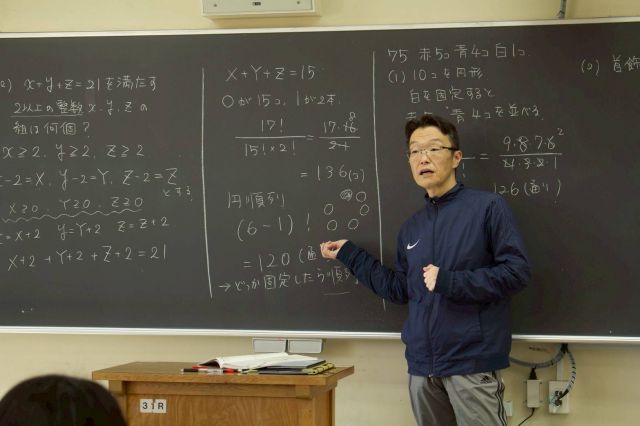 x+y+z=21を満たす
2以上の整数 x, y, z の
組は何個?
x≧2, y≧2, z≧2
-2=X, y-2=Y, z-2=Z
とする
X≧0, Y≧0, Z≧0
=X+2 y=Y+2 z=Z+2
X+2+Y+2+Z+2=21
X+Y+Z=15
0が15コ, 1が2本.
17! / 15!×2! = 17・16 8 / 2・1
=136(コ)
円順列
(6-1)!
=120(通
→どっか固定したら順
75 赤5コ 青4コ 白1コ.
(1) 10コを円形
白を固定すると
青4コを並べる.
= 9・8・7・6 2 / 4・3・2・1
126(通り)
(2) 首飾
31R